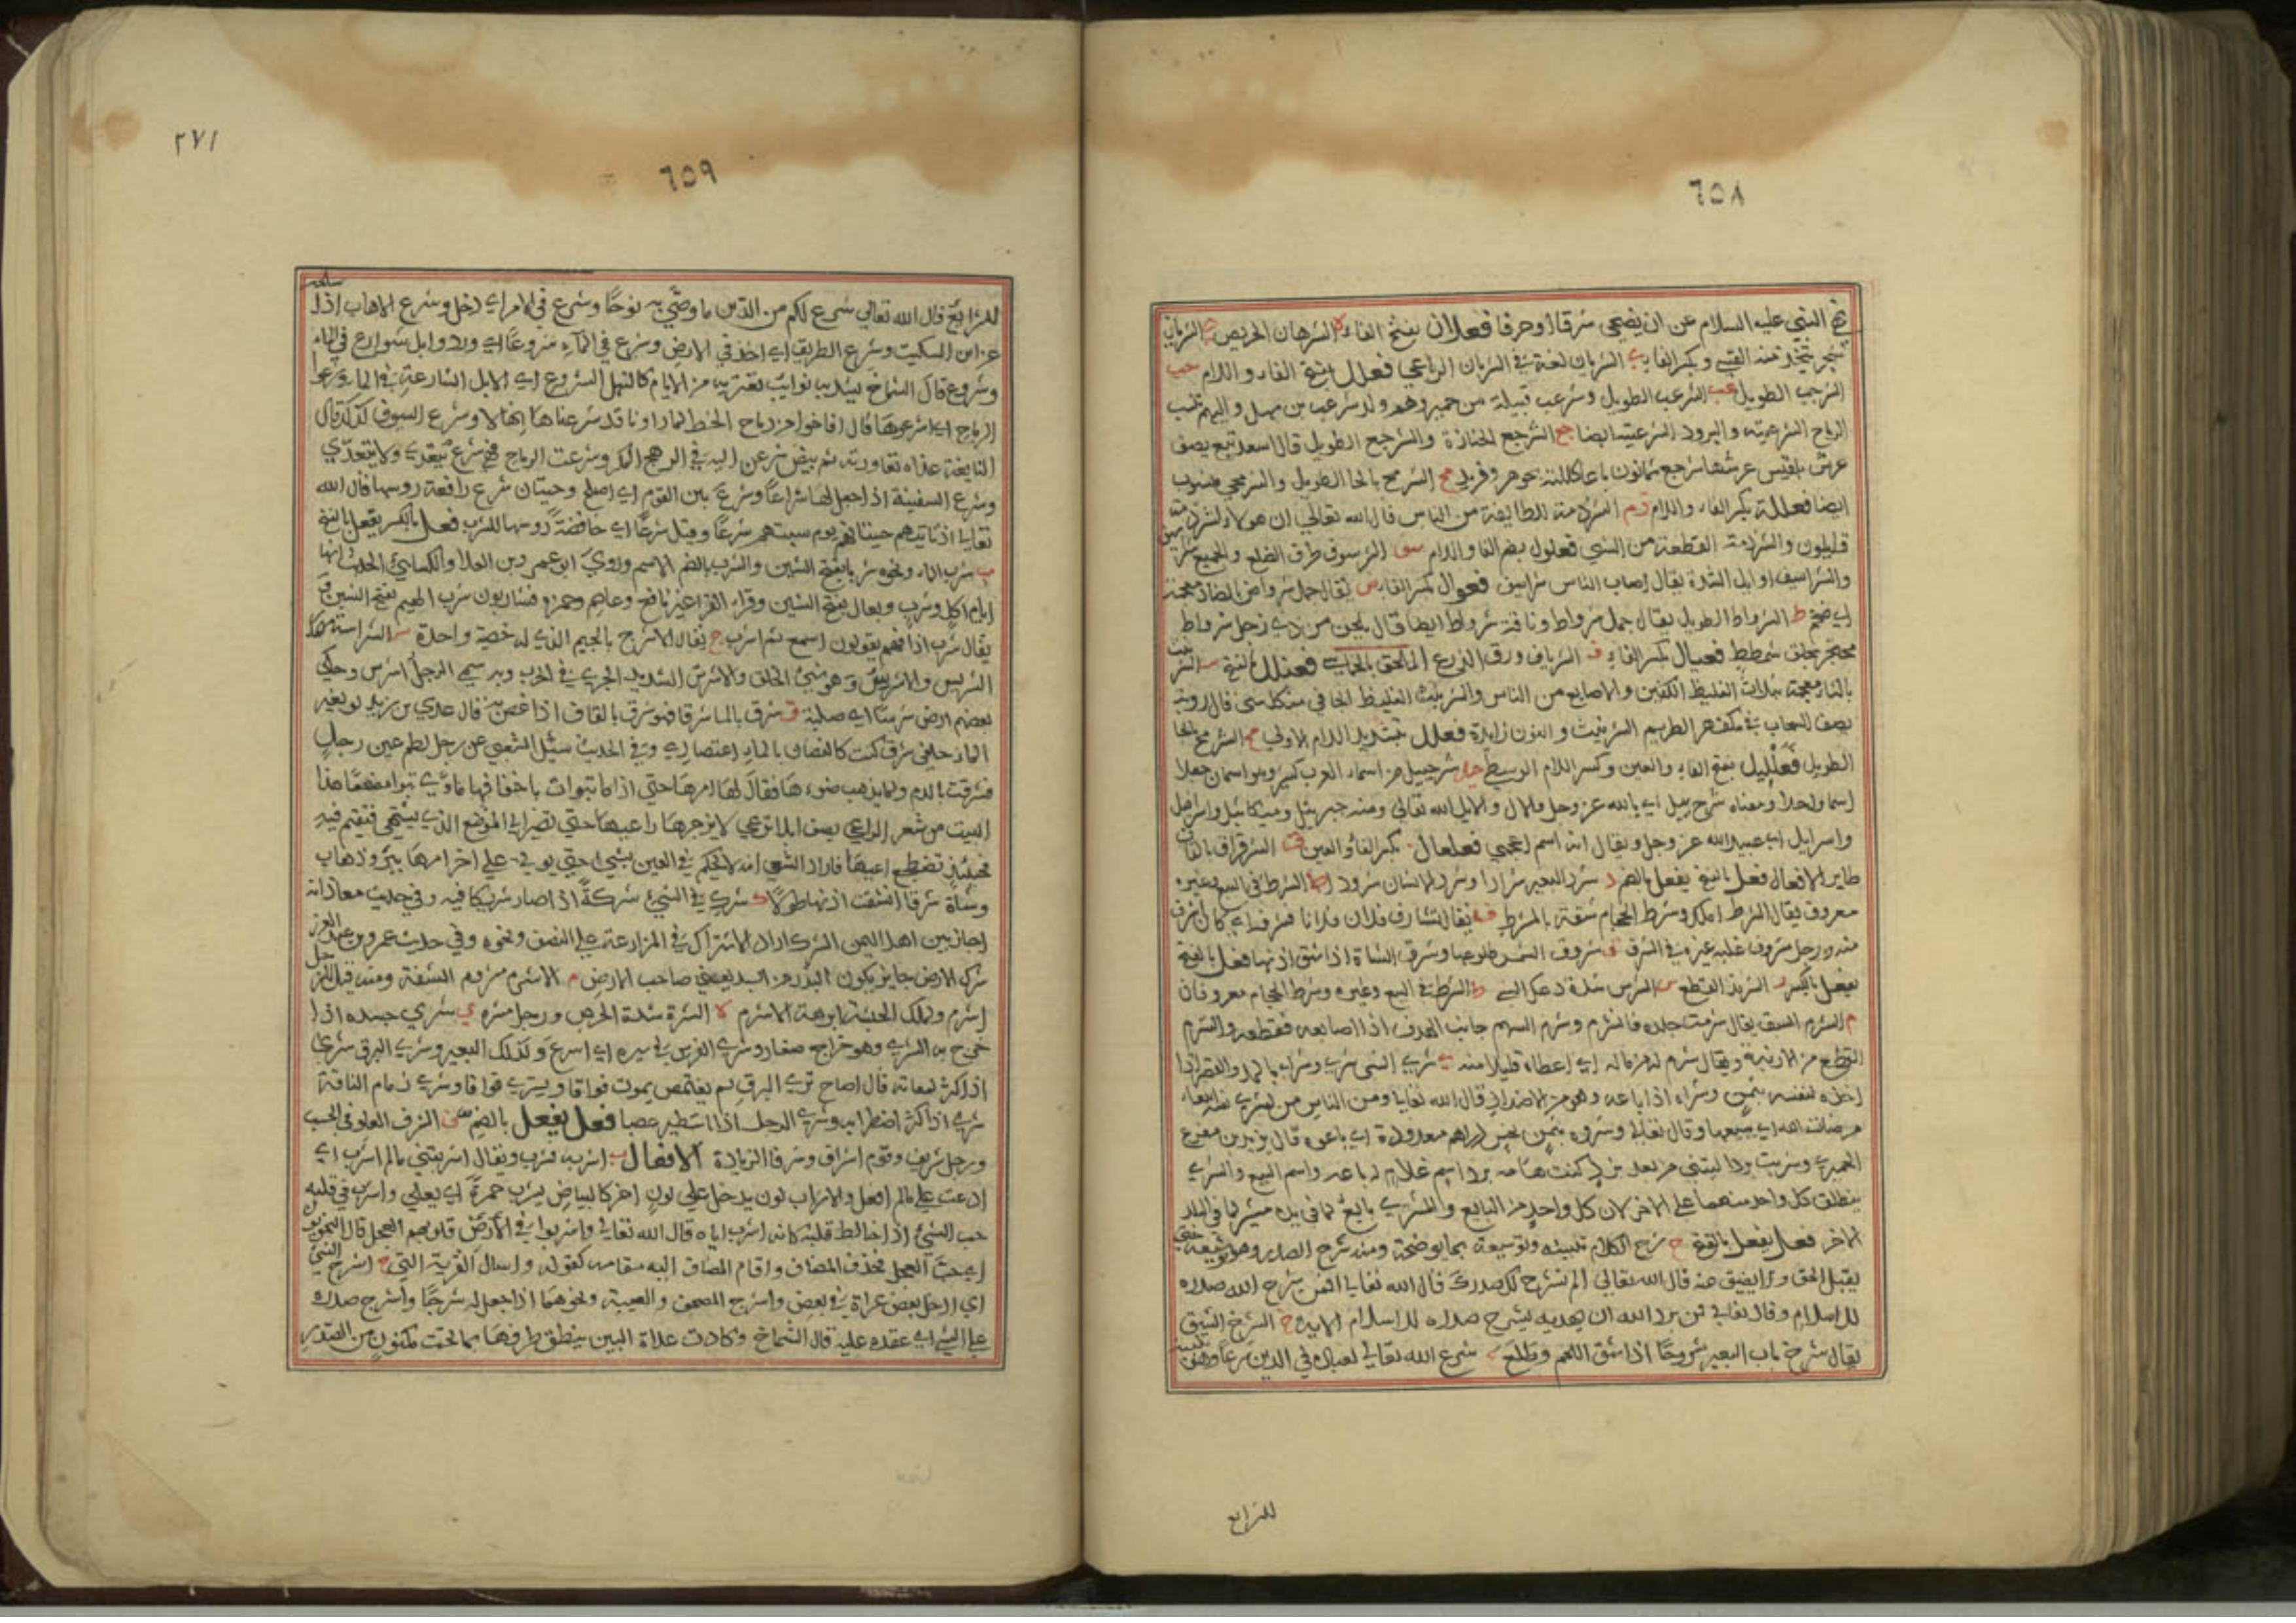 ٦٥٨
نهى النبي عليه السلام عن ان يضحى بشرقا او خرقا فعلان بفتح الفاء ه الشرهان الحريص ي الشريان
شجر يتخذ منه القسي وبكسر الفاء ي الشريان لغة في الشريان الرباعي فعلل بفتح الفاء واللام جب
الشرجب الطويل عب الشرعب الطويل وشرعب قبيلة من حمير وهم ولد شرعب بن سهل واليهم تنسب
الرماح الشرعبية والبرود الشرعبية ايضا جع الشرجع الجنازة والشرجع الطويل قال اسعد تبع يصف
عرش بلقيس عرشها شرجع ثمانون باعا كللته بجوهر وفريد مح الشرمح بالحا الطويل والشرمحي منسوب
ايضا فعللة بكسر الفاء واللام ذم الشرذمة للطايفة من الناس قال الله تعالى ان هولاء لشرذمة
قليلون والشرذمة القطعة من الشي فعلول بضم الفا واللام سف الشرسوف طرف الضلع والجميع شراسيف
والشراسيف اوايل الشدة يقال اصاب الناس شراسيف فعوال بكسر الفاء ض يقال جمل شرواض بالضاد معجمة
اي ضخم ط الشرواط الطويل يقال جمل شرواط وناقة شرواط ايضا قال يلحن من ذي زجل شرواط
محتجز بخلق شمطاط فعيال بكسر الفاء ف الشرياف ورق الزرع الملحق بالخماسي فعنلل بالفتح الشرنبث
بالثاء معجمة بثلاث الغليظ الكفين والاصابع من الناس والشرنبث الغليظ الجافي من كل شي قال روبة
يصف السحاب في مكفهر الطريم الشرنبث والنون زايدة فعلل بتشديد اللام الاولى مح الشرمح بالحا
الطويل فعلليل بفتح الفاء والعين وكسر اللام الوسطى حل شرحبيل من اسماء العرب كثير وهو اسمان جعلا
اسما واحدا ومعناه شرح بيل اي بالله عز وجل والال والايل الله تعالى ومنه جبريئل وميكائيل واسرافيل
واسرايل اي عبيد الله عز وجل ويقال انه اسم اعجمي فعلعال بكسر الفاء والعين ق الشرقراق بالقاف
طاير الافعال فعل بالفتح يفعل بالضم د شرد البعير شرادا وشرد الانسان شرودا ط الشرط في البيع وغيره
معروف يقال الشرط املك وشرط الحجام شقه بالمشرط ف يقال تشارف فلان فلانا فشرفه اي كان اشرف
منه ورجل مشروف غلبه غيره في الشرف ق شروق الشمس طلوعها وشرق الشاة اذا شق اذنها فعل بالفتح
يفعل بالكسر الشرز القطع س الشرس شدة دعك الشي ط الشرط في البيع وغيره وشرط الحجام معروفان
م الشرم الشق يقال شرمت جلده فانشرم وشرم السهم جانب الهدف اذا اصابه فقطعه والشرم
القطع من الارنبة ويقال شرم له من ماله اي اعطاه قليلا منه ي شرى الشي شرى وشراء بالمد والقصر اذا
اخذه لنفسه بثمن وشراه اذا باعه وهو من الاضداد قال الله تعالى ومن الناس من يشري نفسه ابتغاء
مرضات الله اي يبيعها وقال تعالى وشروه بثمن بخس دراهم معدودة اي باعوه قال يزيد بن مفرغ
الحميري وشريت بردا ليتني من بعد برد كنت هامه برد اسم غلام له باعه واسم البيع والشرى
ينطلق كل واحد منهما على الاخر لان كل واحد من البايع والمشتري بايع لما في يده مشتر لما في اليد
الاخر فعل يفعل بالفتح ح شرح الكلام تبيينه وتوسيعه بما يوضحه ومنه شرح الصدر وهو توسيعه حتى
يقبل الحق ولا يضيق منه قال الله تعالى الم نشرح لك صدرك قال الله تعالى افمن شرح الله صدره
للاسلام وقال تعالى فمن يرد الله ان يهديه يشرح صدره للاسلام الاية خ الشرخ الشق
يقال شرخ ناب البعير شروخا اذا شق اللحم وطلع ع شرع الله تعالى لعباده في الدين شرعا وهو تبيينه
للشرايع
٢٧١
٦٥٩
للشرايع قال الله تعالى شرع لكم من الدين ما وصى به نوحا وشرع في الامر اي دخل وشرع الاهاب اذا سلخه
عن ابن السكيت وشرع الطريق اي اخذ في الارض وشرع في الماء شروعا اي ورد وابل شوارع في الماء
وشروع قال الشماخ يسد به نوايب تعتريه من الايام كالنهل الشروع اي الابل الشارعة في الماء وشرعوا
الرماح اي اشرعوها قال افاخوا من رماح الخط لما راونا قد شرعناها نهالا وشرع السيوف كذلك قال
النابغة غداة تعاورته ثم بيض شرعن اليه في الرهج المكن وشرعت الرماح فهي شرع يتعدى ولا يتعدى
وشرع السفينة اذا جعل لها شراعا وشرع بين القوم اي اصلح وحيتان شرع رافعة روسها قال الله
تعالى اذ تاتيهم حيتانهم يوم سبتهم شرعا وقيل شرعا اي خافضة روسها للشرب فعل بالكسر يفعل بالفتح
ب شرب الماء ونحوه شربا بفتح الشين والشرب بالضم الاسم وروى ابو عمرو بن العلا والكسائي الحديث انها
ايام اكل وشرب وبعال بفتح الشين وقراء القراء غير نافع وعاصم وحمزة فشاربون شرب الهيم بفتح الشين
يقال شرب اذا فهم يقولون اسمع ثم اشرب ج يقال الاشرج بالجيم الذي له خصية واحدة س الشراسة مصدر
الشريس والاشرس وهو سيئ الخلق والاشرس الشديد الجري في الحرب وبه سمي الرجل اشرس وحكى
بعضهم ارض شرسا اي صلبة ق شرق بالماء شرقا فهو شرق بالقاف اذا غص به قال عدي بن زيد لو بغير
الماء حلقي شرق كنت كالغصان بالماء اعتصاري وفي الحديث سئل الشعبي عن رجل لطم عين رجل
فشرقت بالدم ولما يذهب ضوءها فقال لها امرها حتى اذا ما تبوات باخفافها ماوى تبوا مضجعا هذا
البيت من شعر الراعي يصف ابلا ترعى لا يزجرها راعيها حتى تصير الى الموضع الذي يشتهي فتقيم فيه
فحينئذ تضطجع راعيها فاراد الشعبي انه لا يحكم في العين بشي حتى يوتى على اخر امرها ببرو وذهاب
وشاة شرقا انشقت اذنها طولا ك شركه في الشيئ شركة اذا صار شريكا فيه وفي حديث معاذ انه
اجاز بين اهل اليمن الشرك اراد الاشتراك في المزارعة على النصف ونحوه وفي حديث عمر بن عبد العزيز
شرك الارض جايز يكون البذر من السيد يعني صاحب الارض م الاشرم مشروم الشفة ومنه قيل رجل
اشرم ولملك الحبشة ابرهة الاشرم ه الشره شدة الحرص ورجل شره ي شري جسده اذا
خرج به الشرى وهو خراج صغار وشري الفرس في سيره اي اسرع وكذلك البعير وشري البرق شرى
اذا كثر لمعانه قال اصاح ترى البرق لم يغتمض يموت فواقا ويشرى فواقا وشري زمام الناقة
شرى اذا كثر اضطرابه وشري الرجل اذا استطير غضبا فعل يفعل بالضم ف الشرف العلو في الحسب
ورجل شريف وقوم اشراف وشرفا الزيادة الافعال ب اشربه فشرب ويقال اشربتني مالم اشرب اي
ادعيت علي مالم افعل والاشراب لون يدخل على لون اخر كالبياض يشرب حمرة اي يعلى واشرب في قلبه
حب الشيئ اذا خالط قلبه كانه اشرب اياه قال الله تعالى واشربوا في قلوبهم العجل قال النحويون
اي حب العجل فحذف المضاف واقام المضاف اليه مقامه كقوله واسال القرية التي ج اشرج الشيئ
اي ادخل بعض عراه في بعض واشرج المصحف والعيبة ونحوهما اذا جعل له شرجا واشرج صدره
على الشيئ اي عقده عليه قال الشماخ وكادت غداة البين ينطق طرفها بما تحت مكنون من الصدر